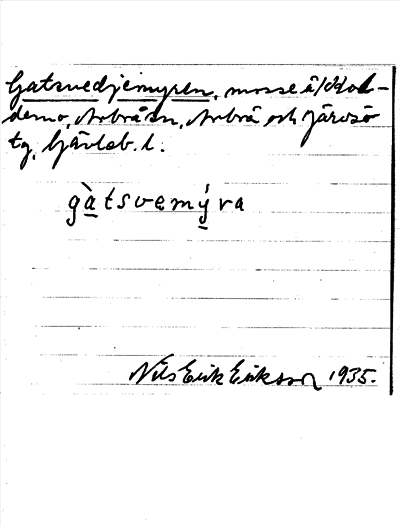 Gatsvedjemyren, mosse å
demo, Arbrå sn, Arbrå och Järvsö
tg, Gävleb. l.
gàtsvemýra
Nils Erik Eriksson 1935.